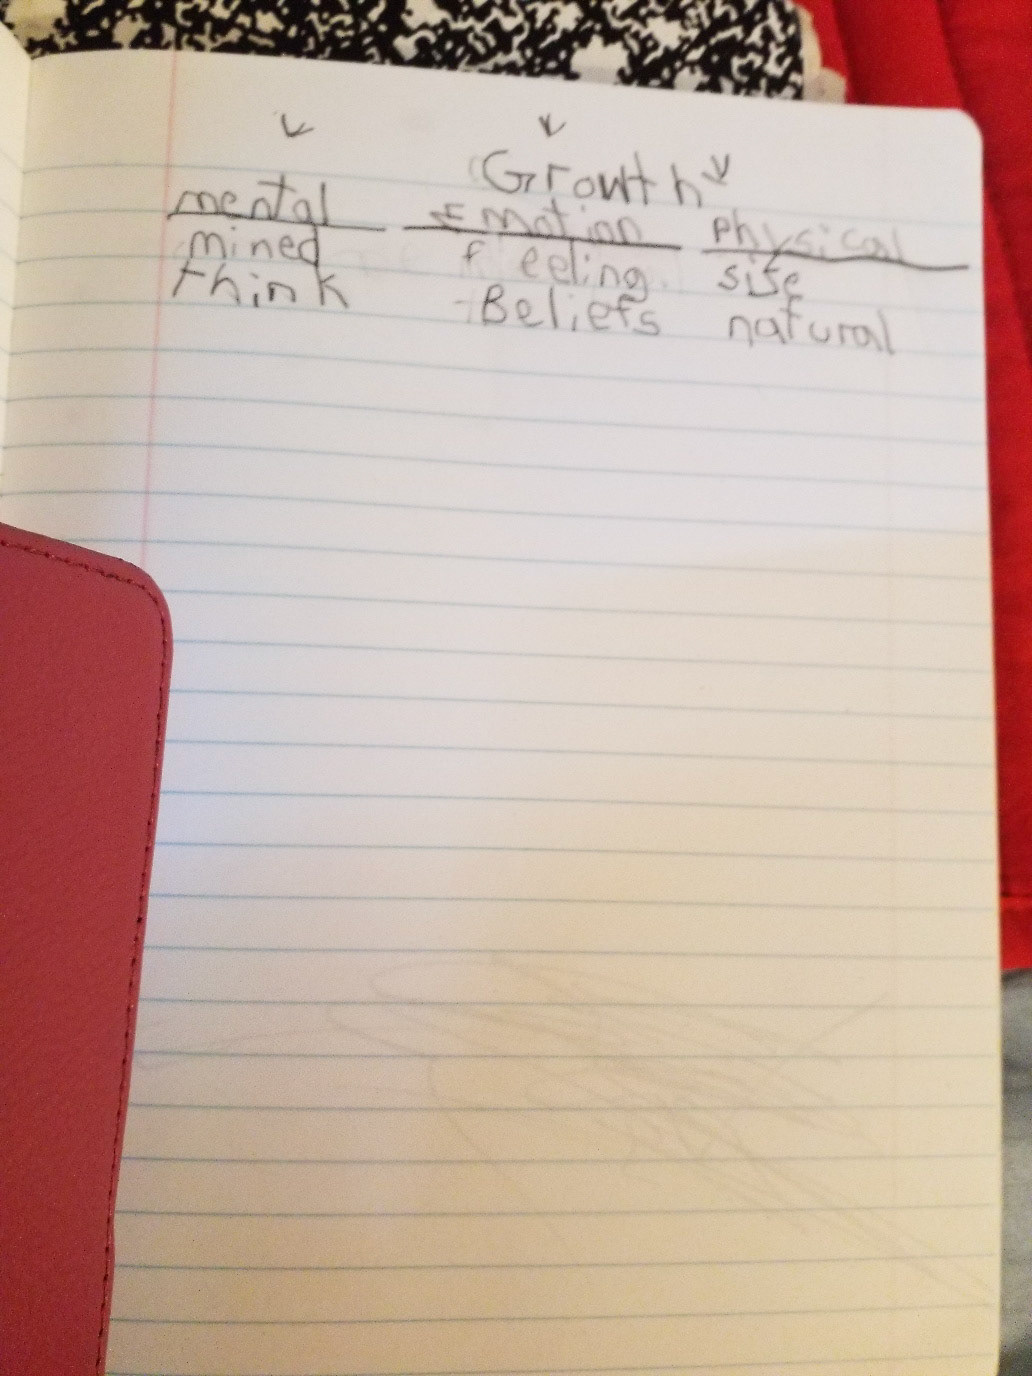 Growth
mental Emotion physical
mined feeling size
think Beliefs natural